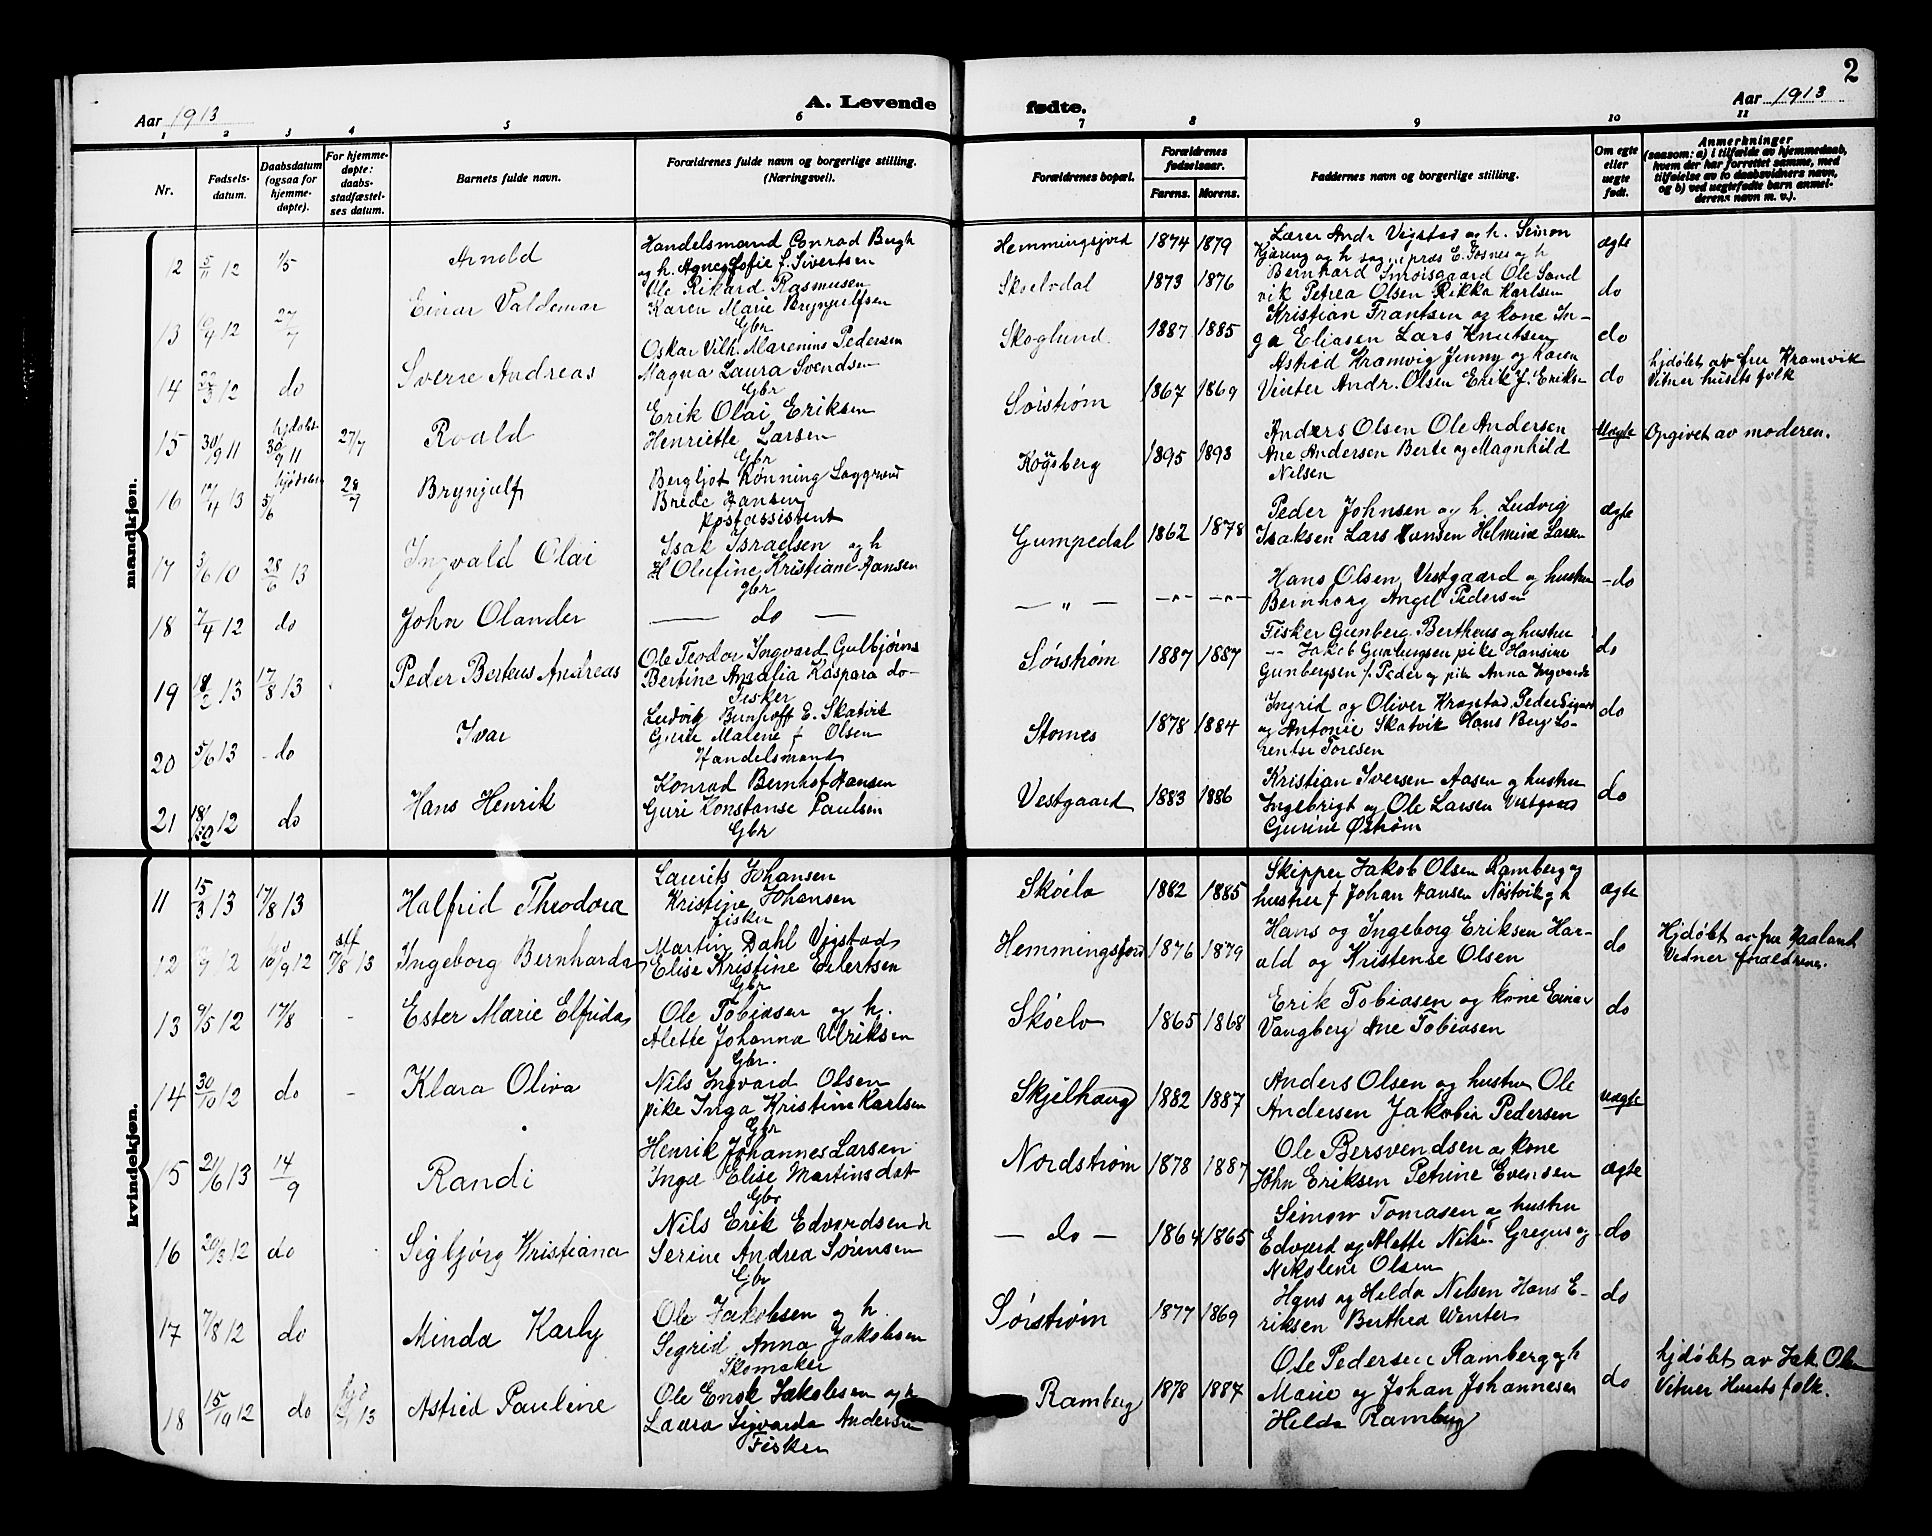 2
Aar 1913
A. Levende
fødte.
Aar 1913
1 2 3 4 5 6 7 8 9 10 11
Nr.
Fødsels-
datum.
Daabsdatum
(ogsaa for
hjemme-
døpte).
For hjemme-
døpte:
daabs-
stadfæstel-
ses datum.
Barnets fulde navn.
Forældrenes fulde navn og borgerlige stilling.
(Næringsvei).
Forældrenes bopæl.
Forældrenes
fødselsaar.
Farens. Morens.
Faddernes navn og borgerlige stilling.
Om egte
eller
uegte
født.
Anmerkninger
(saasom: a) i tilfælde av hjemmedaab,
hvem der har forrettet samme, med
tilføielse av to daabsvidners navn,
og b) ved uegtefødte barn anmel-
derens navn m. v.).
mandkjøn.
12 5/11 12 Arnold
Handelsmand Conrad Bergh
og h. Agnes Sofie f. Sivertsen
Hemmingsjord 1874 1879
Lærer Andr Vigstad og h. Simon
Kjæring og h sogneprœs E. Fosnes og h
ægte
13 12 27/7 Einar Valdemar
Ole Rikard Rasmusen
Karen Marie Brynjulfsen
Gbr
Skoelvdal 1873 1876
Bernhard Smørsgaard Ole Sand
vik Petrea Olsen Rikka Karlsen
do
14 12 do Sverre Andreas
Oskar Vilh. Marenius Pedersen
Magna Laura Svendsen
Gbr
Skoglund 1887 1885
Kristian Frantsen og kone In-
ga Eliasen Lars Knutsen
do
15 30/9 11 30/9 11 27/7 Roald
Erik Olai Eriksen
Henriette Larsen
Gbr
Sørstrøm 1867 1869
Astrid Kramvig Jenny og Karen
Vinter Andr. Olsen Erik J. Eriksen
do
hjdøbt av fru Kramvik
Vitner husets folk
16 17/4 13 5/6 28/7 Brynjulf
Bergljot Rønning
Brede Hansen
Postassistent
1895 1893
Anders Olsen Ole Andersen
Ane Andersen Berte og Magnhild
Nilsen
Uægte
Opgivet av moderen.
17 3/6 10 28/6 13 Ingvald Olai
Isak Israelsen og h
H Olufine Kristiane Hansen
gbr
Gumpedal 1862 1878
Peder Johnsen og h. Ludvig
Isaksen Lars Hansen Helmine Larsen
ægte
18 7/4 12 do John Olander
— do —
— " —
Hans Olsen Vestgaard og hustru
Bernhorg Angel Pedersen
do
19 18/2 13 17/8 13 Peder Berteus Andreas
Ole Teodor Ingvard Gulbjørns
Bertine Amalia Kaspara do-
Fisker
Sørstrøm 1887 1887
Fisker Gunberg Bertheus og hustru
Jakob Gunbergsen pike Hansine
Gunbergsen f. Peder og pike Anna Ingvards
do
20 5/6 13 do Ivar
Ludvig Bernhoff E. Skatvik
Gurie Malene f Olsen
Handelsmand
Stomes 1878 1884
Ingrid og Oliver Kragstad Peder Sigurd
og Antonie Skatvik Hans Berg Lo-
rentse Toresen
do
21 18/10 12 do Hans Henrik
Konrad Bernhof Hansen
Guri Konstanse Paulsen
Gbr
Vestgaard 1883 1886
Kristian Iversen Aasen og hustru
Ingebrigt og Ole Larsen Vestgaard
Gurine Østrøm
do
kvindekjøn.
11 15/3 13 17/8 13 Halfrid Theodora
Laurits Johansen
Kristine Johansen
fisker
Skøelv 1882 1885
Skipper Jakob Olsen Ramberg og
hustru f Johan Hansen Nøstvik og h
ægte
12 12 /9 12 /8 13 Ingeborg Bernharda
Martin Dahl Vigstad
Elise Kristine Eilertsen
Gbr
Hemmingsjord 1876 1879
Hans og Ingeborg Eriksen Har-
ald og Kristense Olsen
do
Hjdøbt av fru Haaland
Vidner forældrene.
13 /5 12 17/8 - Ester Marie Elfrida
Ole Tobiasen og h.
Alette Johanna Ulriksen
Gbr.
Skøelv 1865 1868
Erik Tobiasen og kone Einar
Vangberg Ane Tobiasen
do
14 30/10 12 do - Klara Oliva
Nils Ingvard Olsen
pike Inga Kristine Karlsen
Gbr
Skjelhaug 1882 1887
Anders Olsen og hustru Ole
Andersen Jakobin Pedersen
uægte
15 21/6 13 14/9 Randi
Henrik Johannes Larsen
Inga Elise Martinsdat
Gbr
Nordstrøm 1878 1887
Ole Bersvendsen og kone
John Eriksen Petrine Evensen
ægte
16 20/3 12 do Sigbjørg Kristiana
Nils Erik Edvardsen h
Serine Andrea Sørensen
Gbr
— do — 1864 1865
Simon Tomasen og hustru
Edvard og Alette Nilsen Gregus og
Nikoline Olsen
do
17 7/8 12 do Minda Karly
Ole Jakobsen og h.
Sigrid Anna Jakobsen
Skomaker
Sørstrøm 1877 1869
Hans og Hilda Nilsen Hans E-
riksen Berthea Winter
do
18 15/10 12 do 13 Astrid Pauline
Ole Enok Jakobsen og h
Laura Sigvarda Andersen
Fisker
Ramberg 1878 1887
Ole Pedersen Ramberg og h
Marie og Johan Johannesen
Hilda Ramberg
do
hjdøbt av Jak Olsen
Vitner Husets folk.